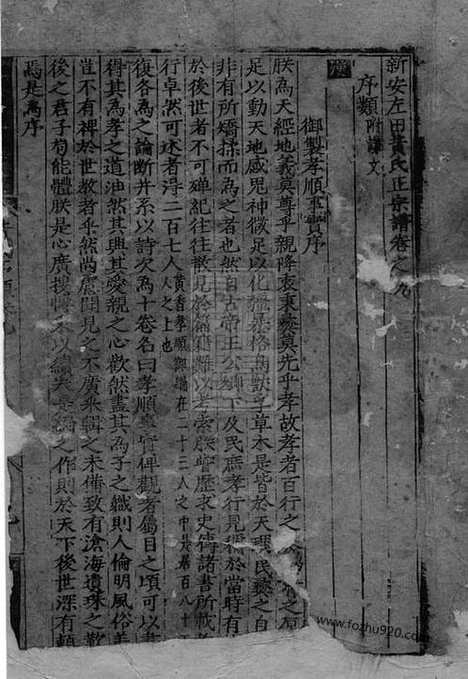 新安左田黃氏正宗譜卷之九
序類附講文
御製孝順事實序
朕為天經地義莫尊乎親降衷秉彝莫先乎孝故孝者百行之
足以動天地感鬼神微足以化強暴格鳥獸孚草木是皆於天理民彝之自
非有所矯揉而為之者也然自古帝王公卿下及民庶孝行見稱於當時有
於後世者不可殫紀往往散見於簡籍難以考索朕嘗歷求史傳諸書所載
行卓然可述者得二百七人黃香孝順興編在二十三人之中
復各為之論斷并系以詩次為十卷名曰孝順事實俾觀者屬目之頃可以
得其為孝之道油然其興其愛親之心歡然盡其為子之職則人倫明風俗美
豈不有裨於世教者乎然尚慮聞見之不廣采輯之未備致有滄海遺珠之歎
後之君子苟能體朕是心廣搜博采以續為之作則於天下後世深有賴
焉是為序
www.fozhu920.com